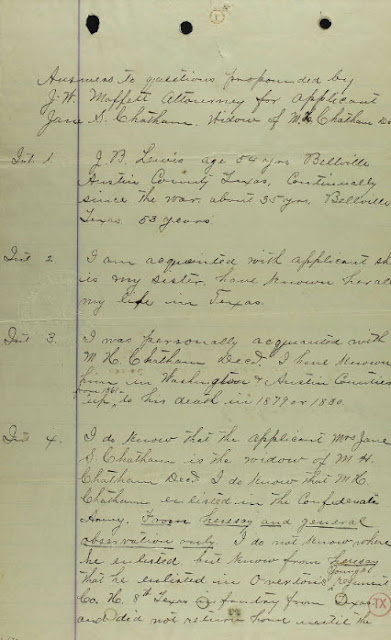 Answers to questions propounded by
J. W. Moffett Attourney for applicant
Jane S. Chatham, Widow of M H Chatham Decd
Int. 1 J. B. Lewis age 54 yrs Bellville
Austin County Texas, Continually
since the war about 35 yrs, Bellville
Texas 53 years
Int 2 I am acquented with applicant she
is my sister, have known her all
my life in Texas.
Int 3. I was personally acquented with
M H. Chatham Decd. I have known
him in Washington & Austin Counties
from 1861
up to his death in 1879 or 1880.
Int 4. I do know that the applicant Mrs Jane
S Chatham is the widow of M. H.
Chatham Decd I do know that M H.
Chatham enlisted in the Confederate
Army. From hersay and general
observation only. I do not know where
he enlisted but know from hersay
that he enlisted in Overtons regiment
Co. H. 8th Texas Infantry from Texas
and did not return home until the
TX